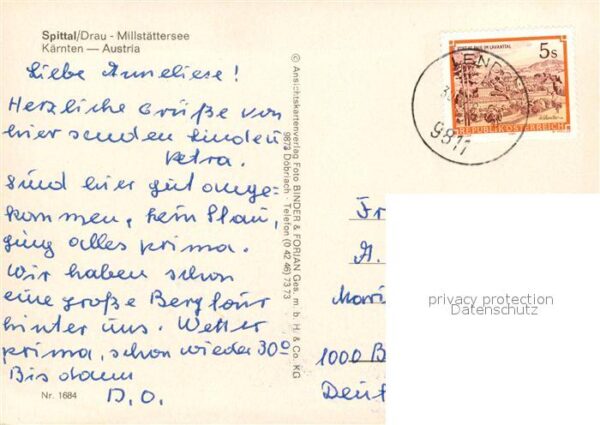 Spittal/Drau - Millstättersee
Kärnten — Austria
Liebe Anneliese!
Herzliche Grüße von
hier senden Linden
Petra.
Sind hier gut ange-
kommen, kein Stau,
ging alles prima.
Wir haben schon
eine große Bergtour
hinter uns. Wetter
prima, schon wieder 30°
Bis dann
D.O.
Nr. 1684
© Ansichtskartenverlag Foto BINDER & FORIAN Ges. m. b. H. & Co. KG
9873 Döbriach - Telefon (0 42 46) 73 73
IM LAVANTTAL
5s
REPUBLIK ÖSTERREICH
9811
Fr
A.
Mari
1000 B
Deut
privacy protection
Datenschutz